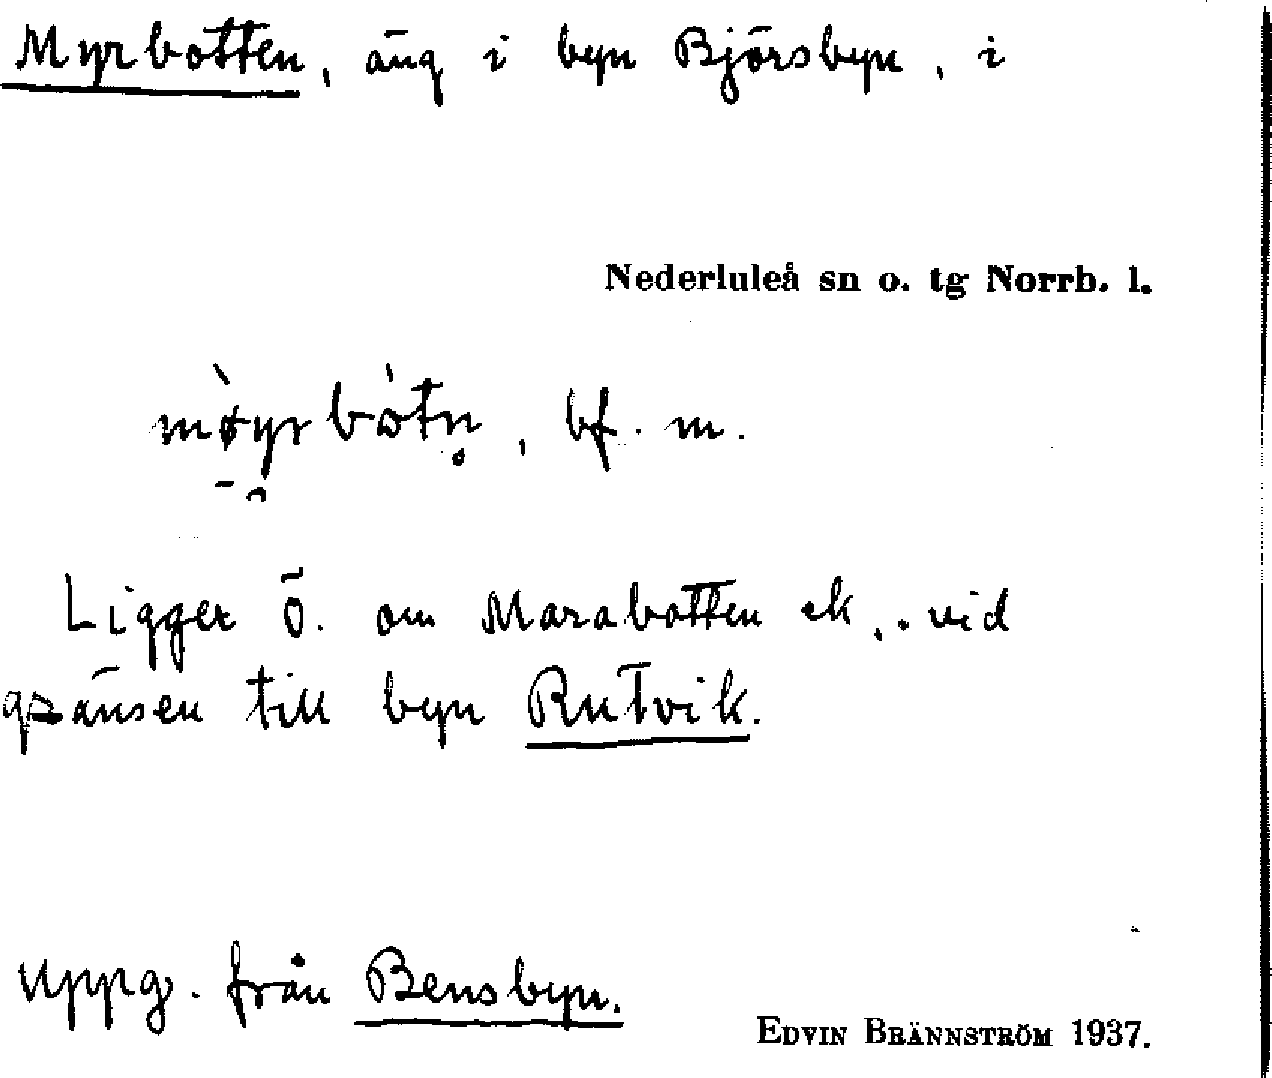 Myrbotten, äng i byn Björsbyn, i
Nederluleå sn o. tg Norrb. l.
mø̀yrbòtn̥, bf. m.
Ligger ö. om Marabotten ek., vid
gränsen till byn Rutvik.
Uppg. från Bensbyn.
EDVIN BRÄNNSTRÖM 1937.